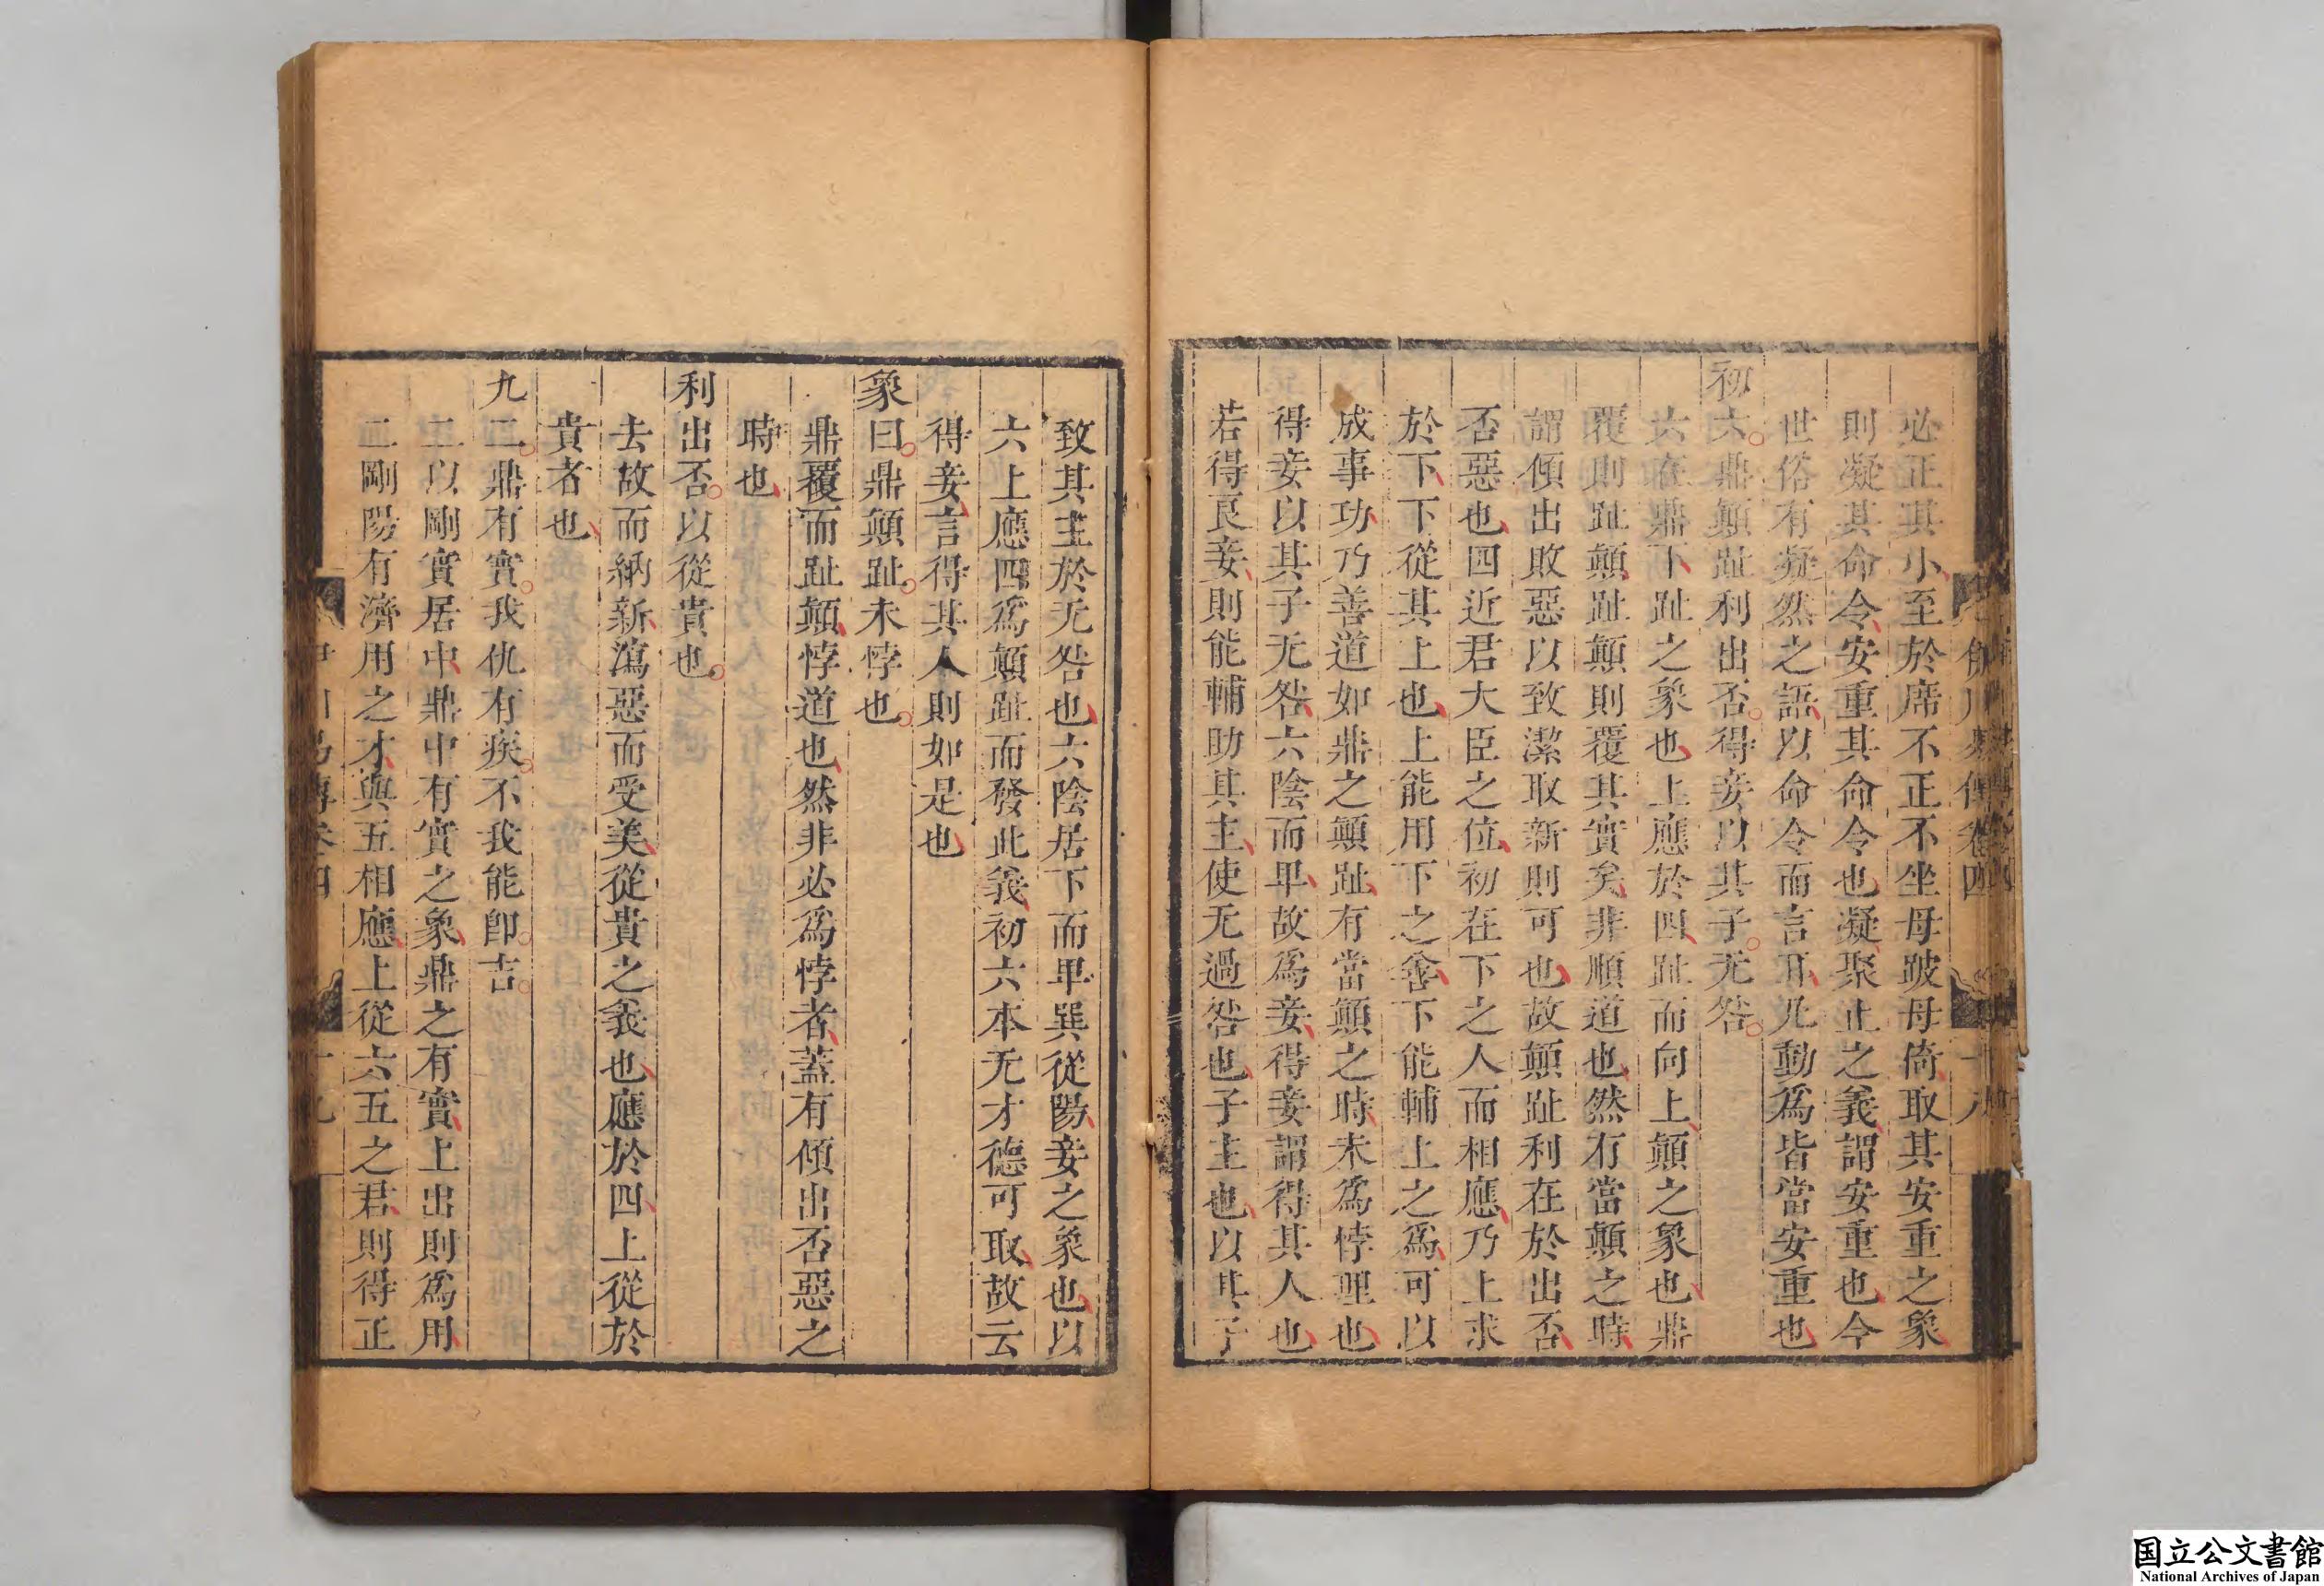 必正其小至於席不正不坐毋跛毋倚取其安重之象
則凝其命令安重其命令也凝聚止之義謂安重也今
世俗有凝然之語以命令而言耳凡動爲皆當安重也
初六鼎顛趾利出否得妾以其子无咎
六在鼎下趾之象也上應於四趾而向上顛之象也鼎
覆則趾顛趾顛則覆其實矣非順道也然有當顛之時
謂傾出敗惡以致潔取新則可也故顛趾利在於出否
否惡也四近君大臣之位初在下之人而相應乃上求
於下下從其上也上能用下之善下能輔上之爲可以
成事功乃善道如鼎之顛趾有當顛之時未爲悖理也
得妾以其子无咎六陰而卑故爲妾得妾謂得其人也
若得良妾則能輔助其主使无過咎也子主也以其子
致其主於无咎也六陰居下而卑巽從陽妾之象也以
六上應四爲顛趾而發此義初六本无才德可取故云
得妾言得其人則如是也
象曰鼎顛趾未悖也
鼎覆而趾顛悖道也然非必爲悖者蓋有傾出否惡之
時也
利出否以從貴也
去故而納新瀉惡而受美從貴之義也應於四上從於
貴者也
九二鼎有實我仇有疾不我能卽吉
二以剛實居中鼎中有實之象鼎之有實上出則爲用
二剛陽有濟用之才與五相應上從六五之君則得正
国立公文書館
National Archives of Japan